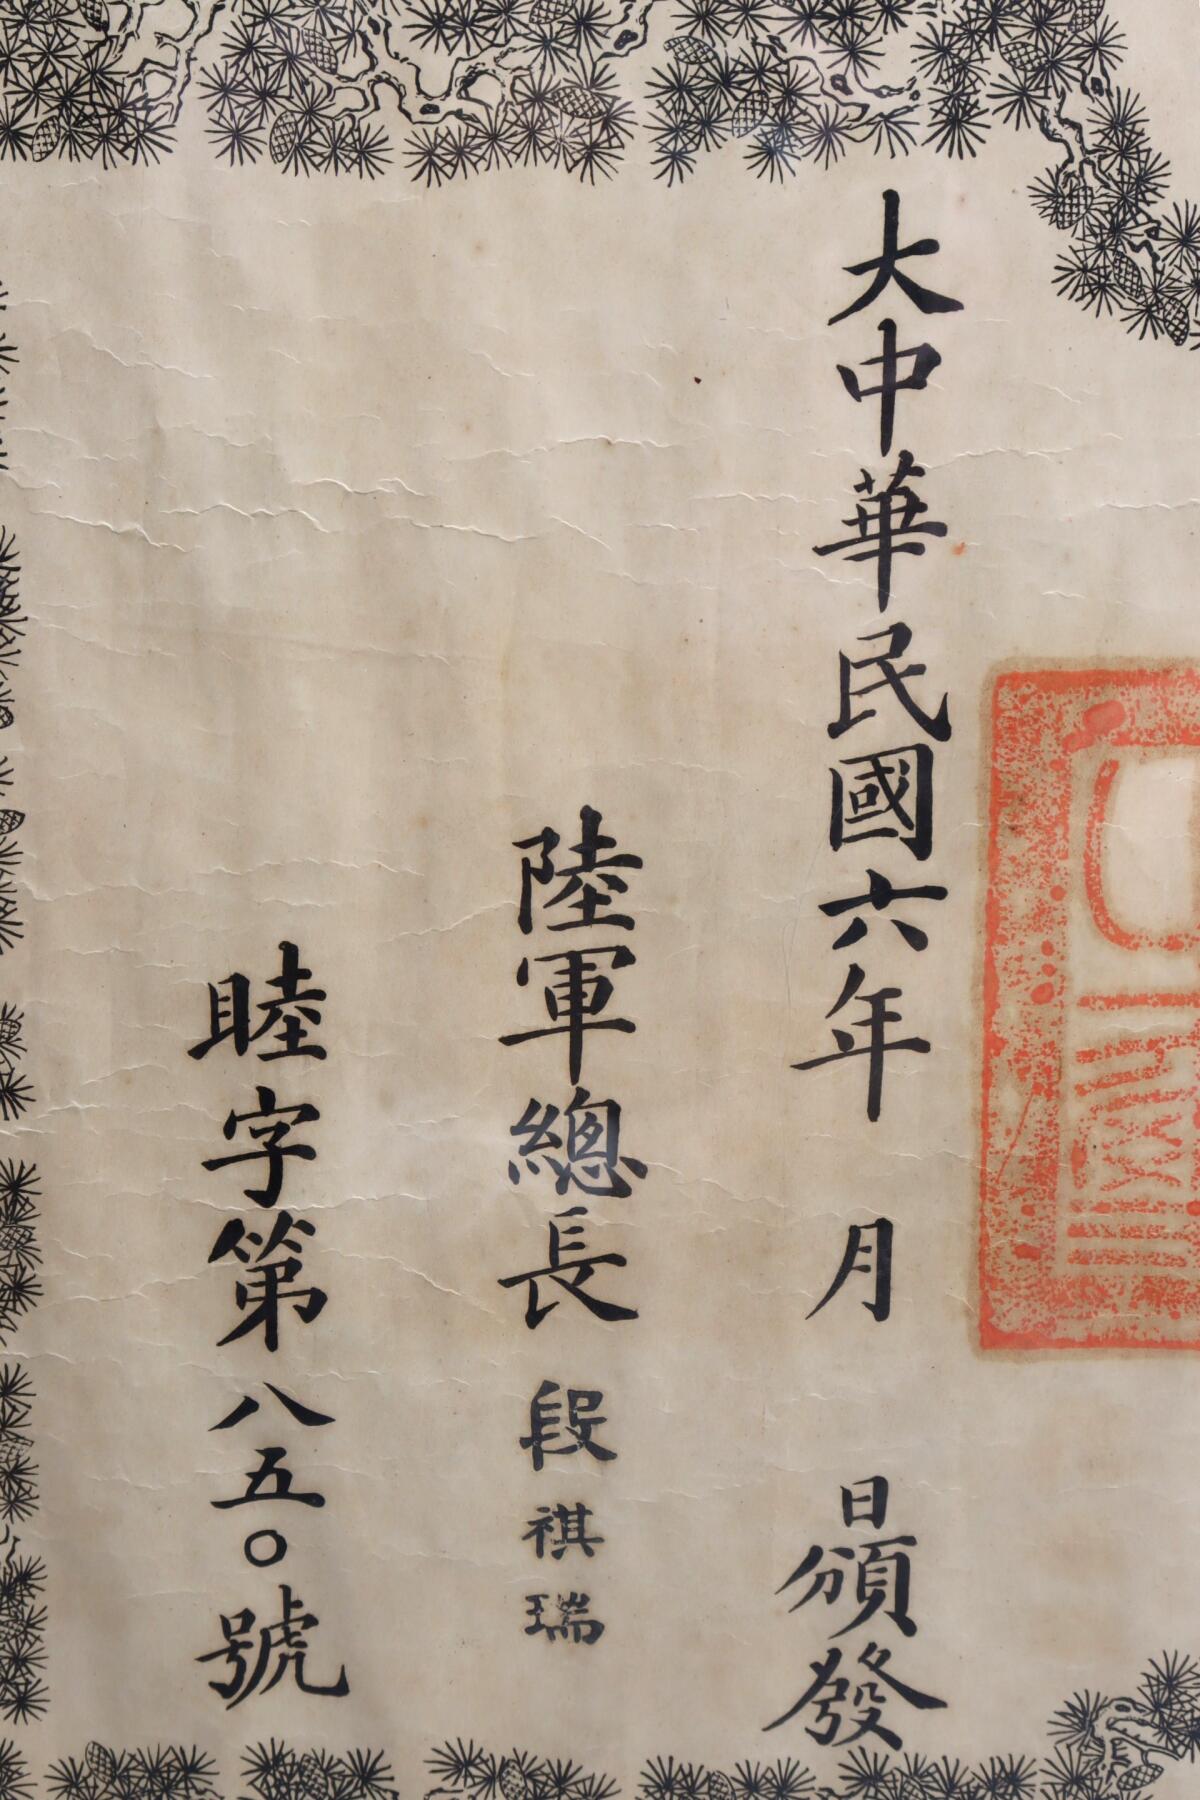 大中華民國六年 月 日頒發
陸軍總長 段祺瑞
睦字第八五〇號